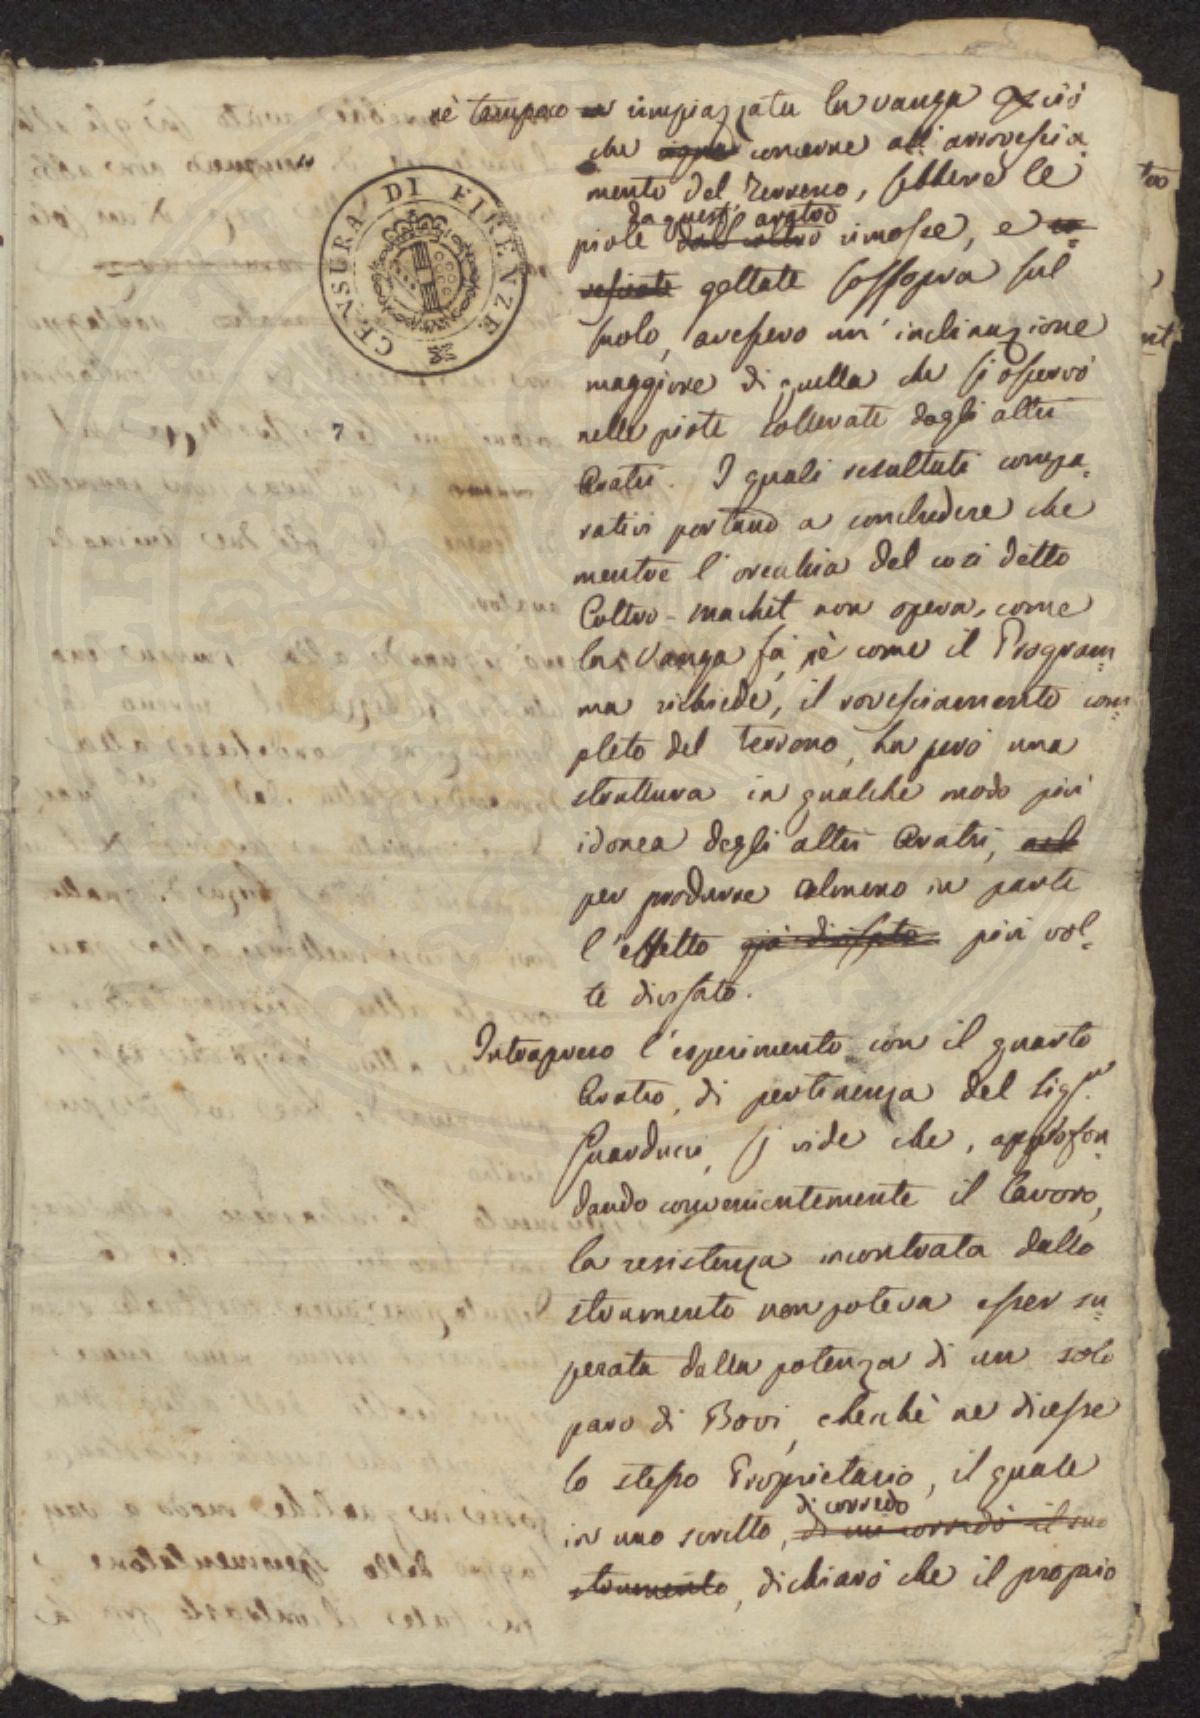 nè tampoco rimpiazzata la vanga per ciò
che concerne all' arrovescia-
mento del Terreno, sebbene le
da quest' aratro
piote dall' coltro rimosse, e co-
vesciate gettate sossopra sul
suolo, avessero un' inclinazione
maggiore di quella che si osservò
nelle piote sollevate dagli altri
Aratri. I quali resultati compa-
rativi portano a concludere che
mentre l' orecchia del così detto
Coltro-machet non opera, come
la Vanga fà, nè come il Program-
ma richiede, il rovesciamento com-
pleto del terreno, ha però una
struttura in qualche modo più
idonea degli altri Aratri, nel
per produrre almeno in parte
l' effetto già divisato più vol-
te divisato.
Intrapreso l' esperimento con il quarto
Aratro, di pertinenza del Sigr.
Guarducci, si vide che, approfon-
dando convenientemente il lavoro,
la resistenza incontrata dallo
strumento non poteva esser su-
perata dalla potenza di un solo
paro di Bovi, checchè ne dicesse
lo stesso Proprietario, il quale
di corredo
in uno scritto, di un corredo il suo
strumento, dichiarò che il proprio
CENSURA DI FIRENZE
7